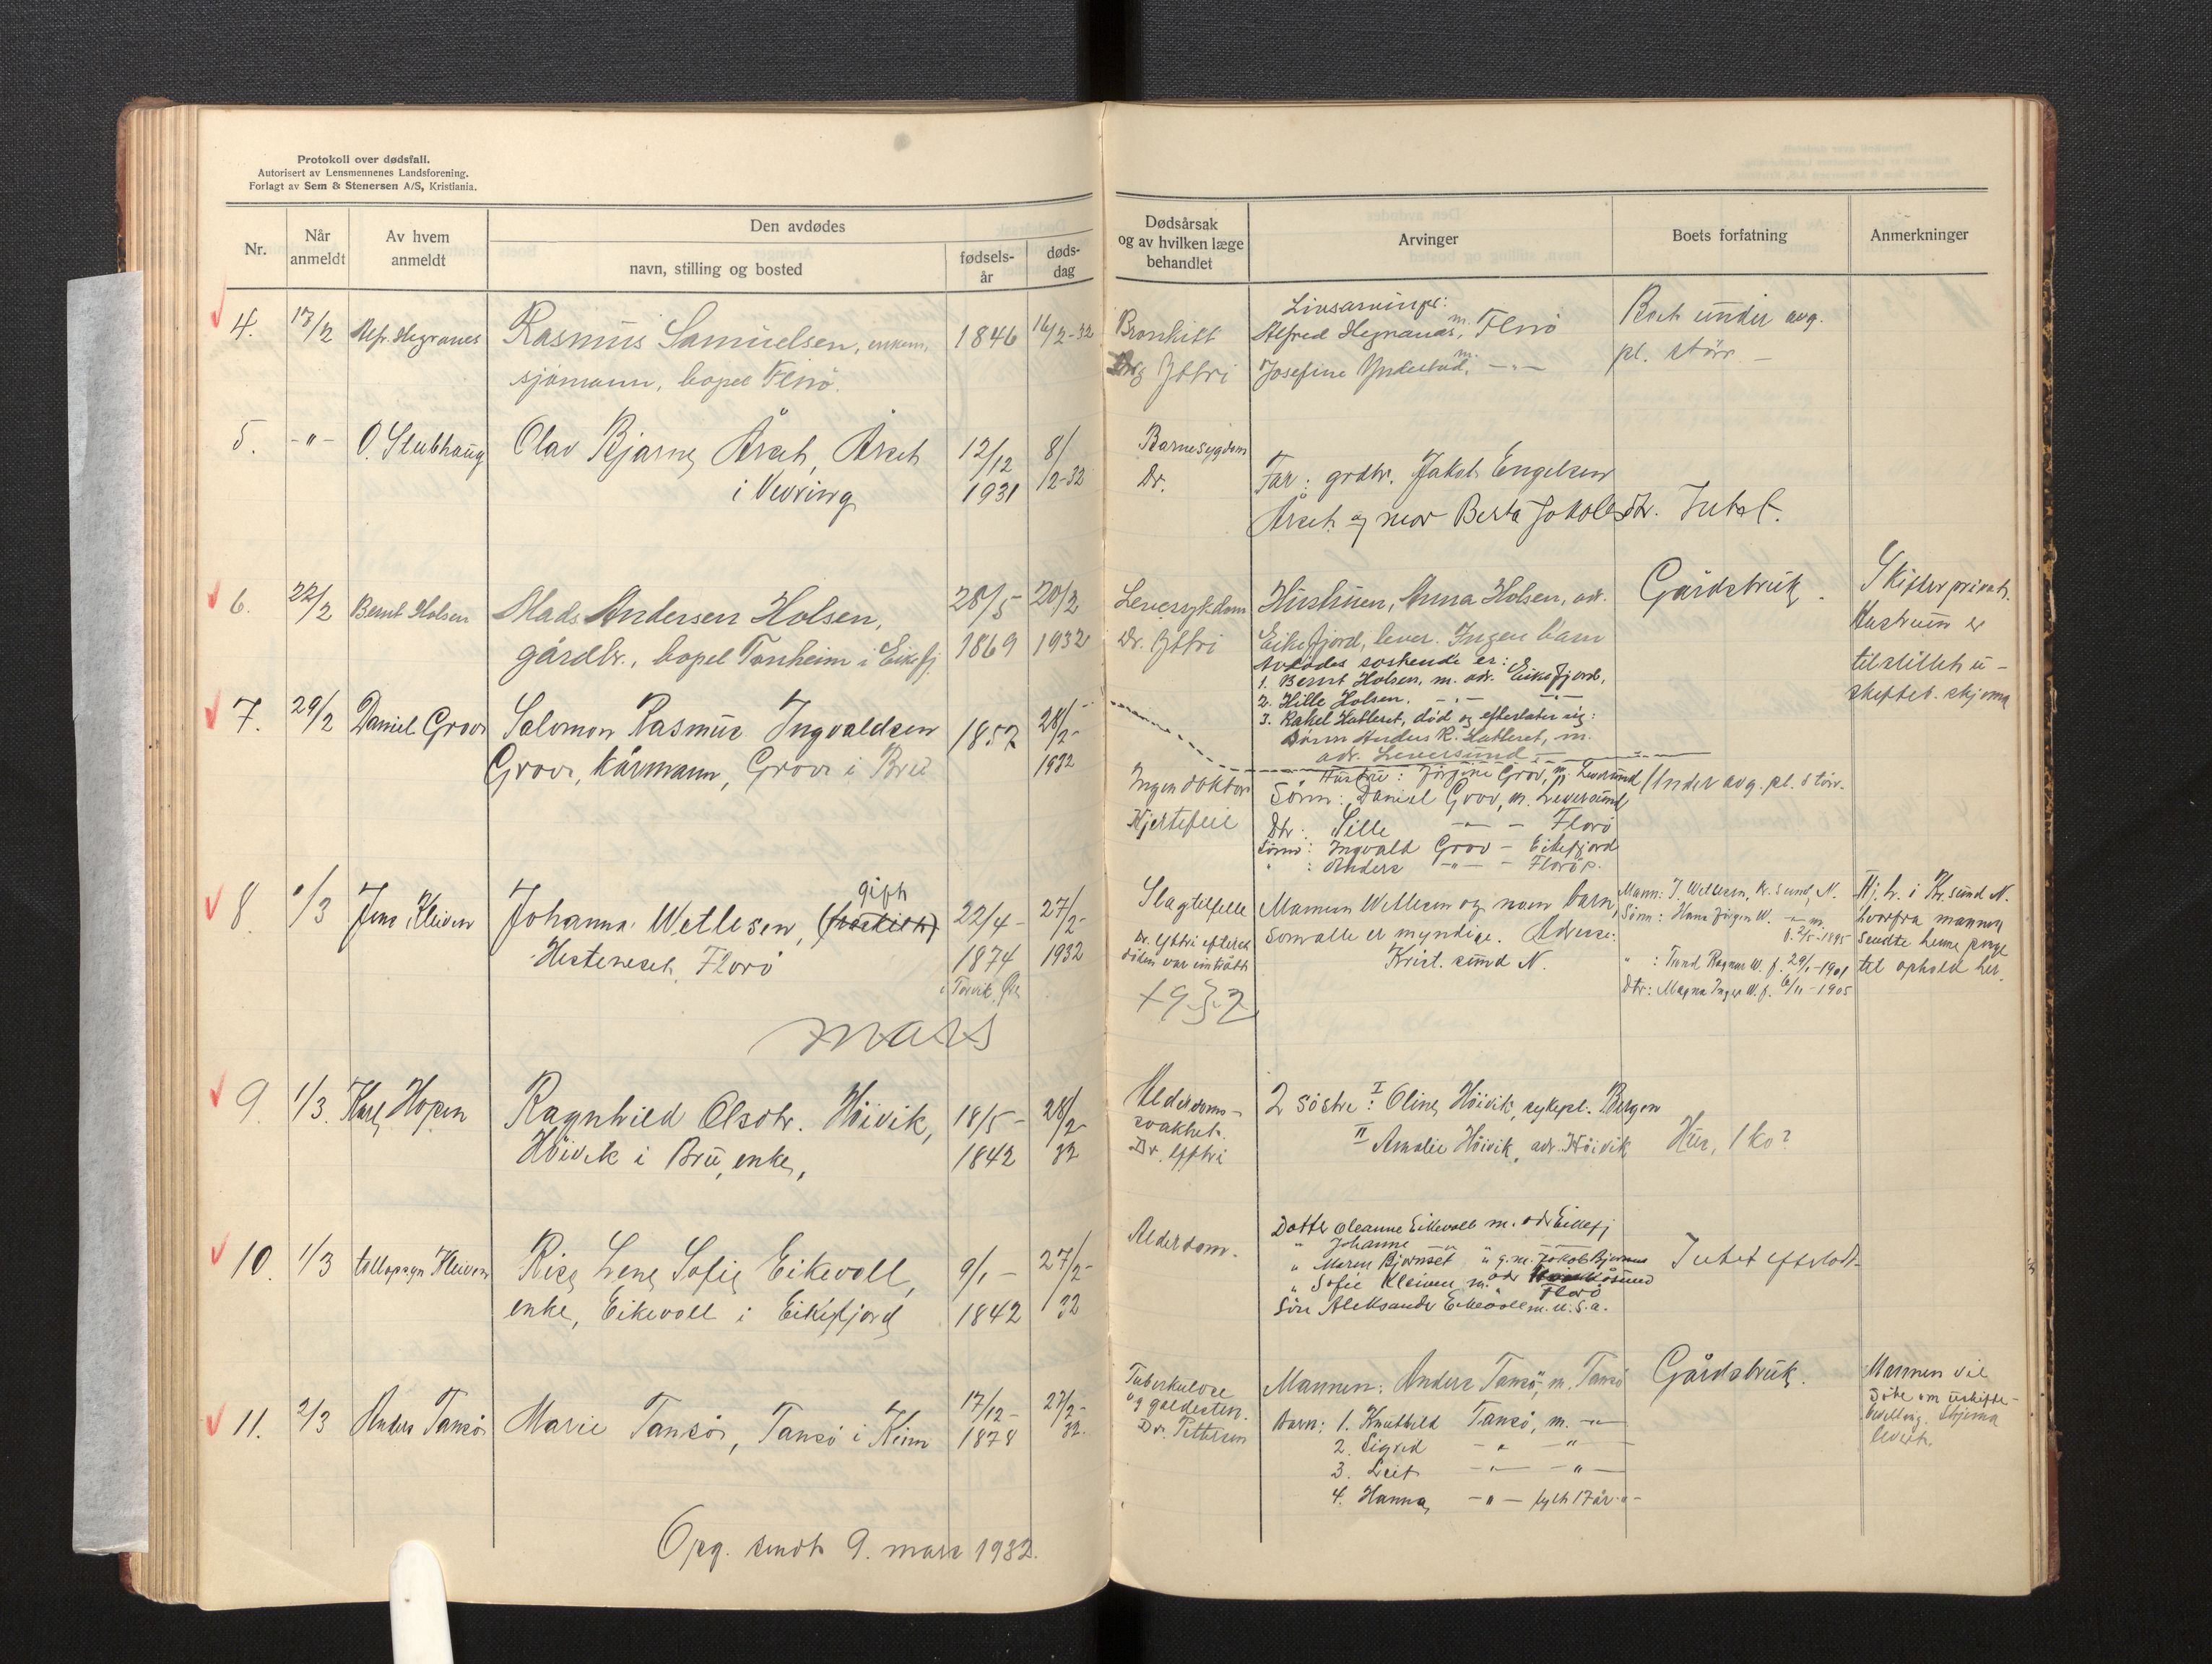 Protokoll over dødsfall.
Autorisert av Lensmennenes Landsforening.
Forlagt av Sem & Stenersen A/S, Kristiania.
Nr.
Når anmeldt
Av hvem anmeldt
Den avdødes
navn, stilling og bosted
fødsels-år
døds-dag
Dødsårsak
og av hvilken læge
behandlet
Arvinger
Boets forfatning
Anmerkninger
4. 17/2 Alfr. Hegranes Rasmus Samuelsen, enkem, 1846 16/2-32
sjømann, bopel Florø.
Bronkitt
Dr
Livsarvinger:
Alfred Hegranæs, m. Florø
Josefine m. -"-
Boet under avg.
pl. størr -
5. -"- O. Stubhaug Olav Bjarne Årset, Årset 12/12 8/
i Vevring 1931 2-32
Barnesygdom
Dr.
Far: grdbr. Jakob Engelsen
Årset og mor Berta Jakobsdtr. Intet.
6. 22/2 Bernt Holsen Mads Andersen Holsen, 28/5 20/2
gårdbr., bopel Tonheim i Eikefj 1869 1932
Leversykdom
Dr.
Hustruen, Anna Holsen, adr.
Eikefjord, lever. Ingen barn
Avdødes søskende er:
1. Bernt Holsen, m. adr. Eikefjord,
2. Hille Holsen. -"- -"-
3. Rakel Hatleset, død og efterlater sig:
Sønn Anders R. Hatleset, m.
adr. Leversund -
Gårdsbruk.
Skifter privat.
Hustruen er
tilstillet u-
skiftet. skjema
7. 29/2 Daniel Grov Salomon Rasmus Ingvaldsen 1857 28/2-
Grov, kårmann, Grov i Bru 1932
Ingen doktor
Hjertefeil
Hustru: Jørgine Grov, m. Leversund
Sønn: Daniel Grov, m. Leversund
Dtr: Sille -"- - Florø
Sønn: Ingvald Grov - Eikefjord
" : Anders -"- - Florø p.
Under avg. pl. størr.
8 1/3 Jens Kleiven Johanna Wetlesen, gift 22/4- 27/2-
Hesteneset, Florø 1874 1932
i Torvik,
Slagtilfelle
Dr. efteret
døden var inntrådt
Mannen Wetlesen og noen barn,
som alle er myndige. Adresse:
Krist. sund N.
Mann: J. Wetlesen, Kr. sund, N.
Sønn: Hans Jørgen W. -"- m.
f. 2/5-1895
" : Trund Ragnar W. f. 29/1-1901
Dtr: Magna Inger W. f. 6/11-1905
Hj. h. i Kr. sund N.
hvorfra mannen
sendte henne penge
til ophold her.
mars
1932
9. 1/3. Karl Hopen Ragnhild Olsdtr. Høivik, 18/5- 28/2-
Høivik i Bru, enke, 1842 32
Alderdoms-
svakhet.
Dr.
2 søstre: I Oline Høivik, sykepl. Bergen
II Amalie Høivik, adr. Høivik
Hus, 1 ko?
10. 1/3 tollopsyn Kleiven Rise Lene Sofie Eikevoll, 9/1- 27/2-
enke, Eikevoll i Eikefjord 1842 32
Alderdom.
Datter Oleanne Eikevoll m. adr Eikefj
" Johanne " "
" Maren Bjørnset " g.m. Jakob Bjørnset
" Sofie Kleiven m. adr
Florø
Søn Aleksander Eikevoll m. U.S.a.
Intet efterlatt
11. 2/3 Anders Tansø Marie Tansø, Tansø i Kinn 17/12- 27/2-
1878 32.
Tuberkulose
og galdesten.
Dr. Pettersen
Mannen: Anders Tansø, m. Tansø
Barn: 1. Knuthild Tansø, m. -"-
2. Sigrid -"- -"-
3. Leif -"- -"-
4. Hanna -"- fylt 17 år -"-
Gårdsbruk.
Mannen vil
søke om uskifte-
bevilling. Skjema
levert.
Opg. sendt 9. mars 1932.